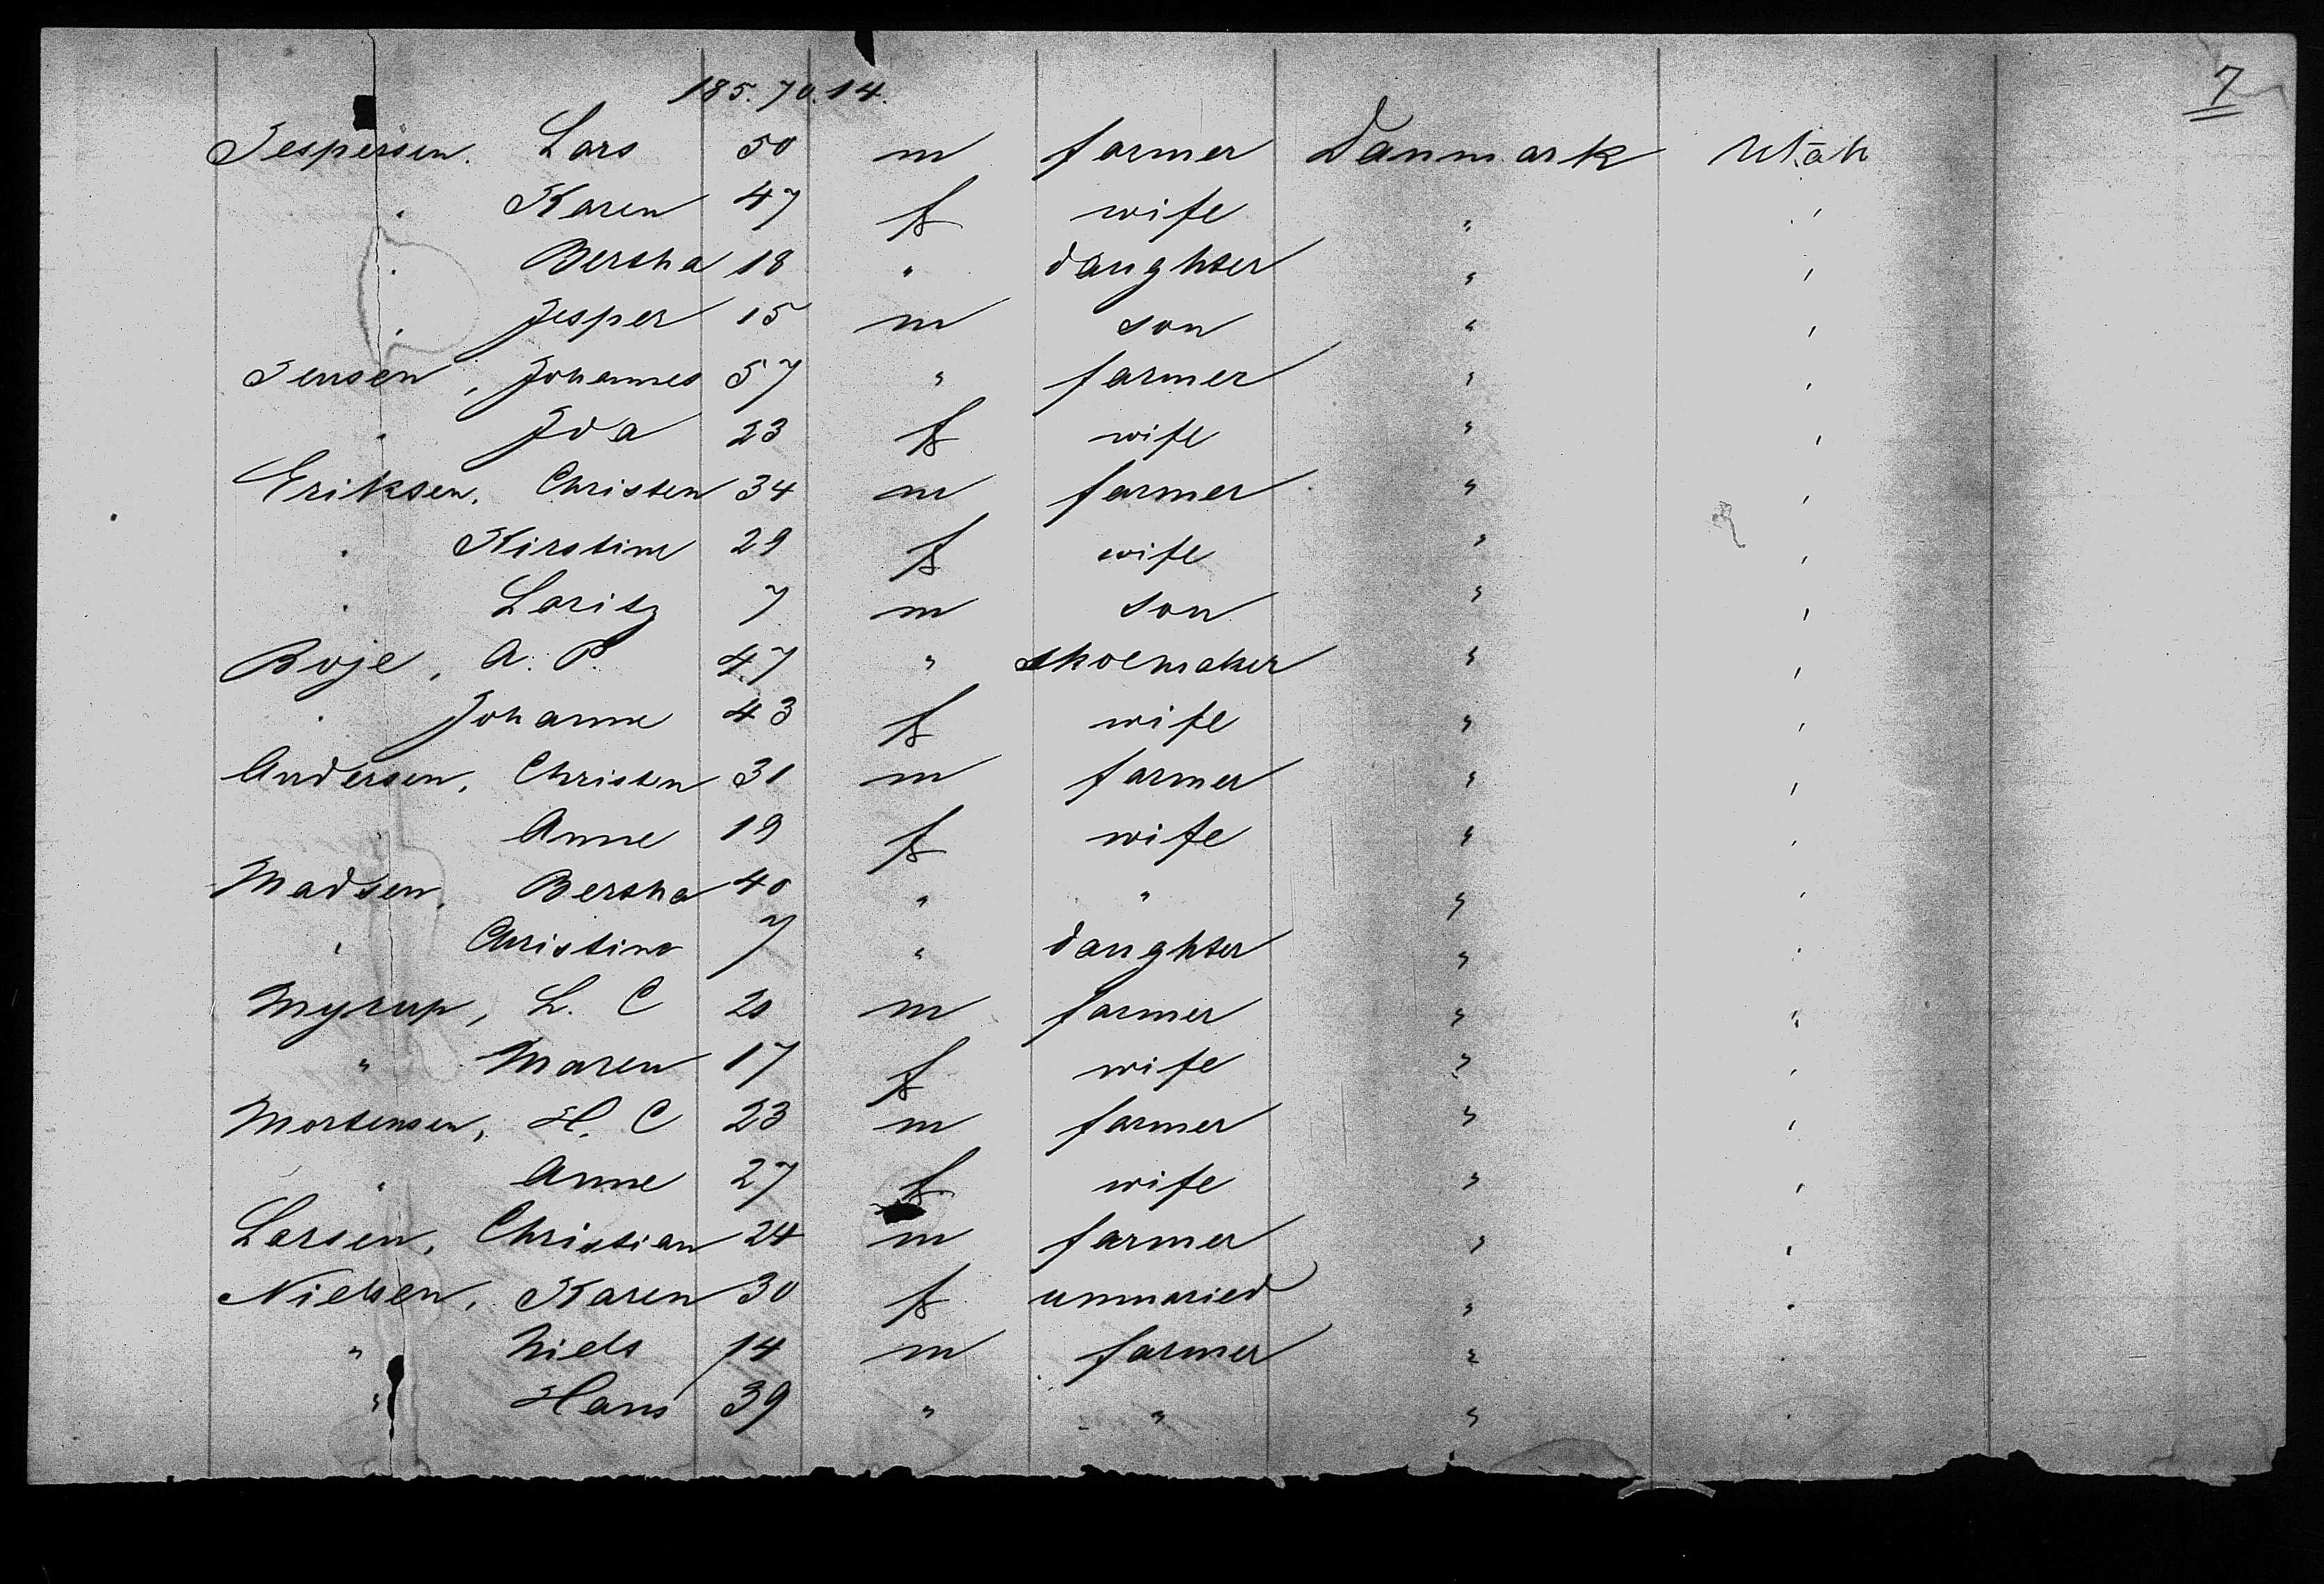 7
185.70.14.
Jespersen. Lars 50 m farmer Danmark Utah
" Karen 47 f wife " "
" Bertha 18 " daughter " "
" Jesper 15 m son " "
Jensen, Johannes 57 " farmer " "
" Ida 23 f wife " "
Eriksen, Christen 34 m farmer " "
" Kirstine 29 f wife " "
" Laritz 7 m son " "
Boje, A. P. 47 " shoemaker " "
" Johanne 43 f wife " "
Andersen, Christen 31 m farmer " "
" Anne 19 f wife " "
Madsen, Bertha 40 " " " "
" Christine 7 " daughter " "
Myrup, L. C 20 m farmer " "
" Maren 17 f wife " "
Mortensen, H. C 23 m farmer " "
" Anne 27 f wife " "
Larsen, Christian 24 m farmer " "
Nielsen, Karen 30 f unmaried " "
" Niels 14 m farmer " "
" Hans 39 " " " "